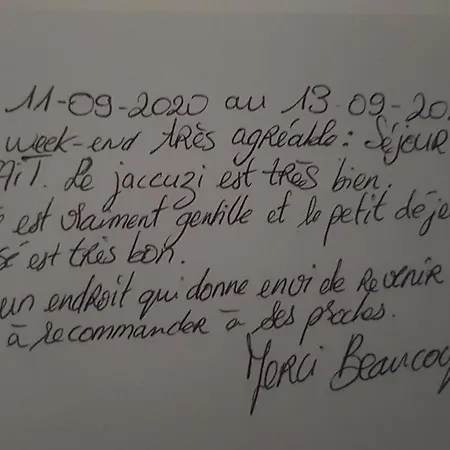 11-09-2020 au 13.09-20
week-end TRÈS agréable : Séjour
AiT. Le jaccuzi est TRÈS bien.
est vraiment gentille et le petit déje
sé est très bon.
un endroit qui donne envi de revenir
à recommander à ses proches.
Merci Beaucou